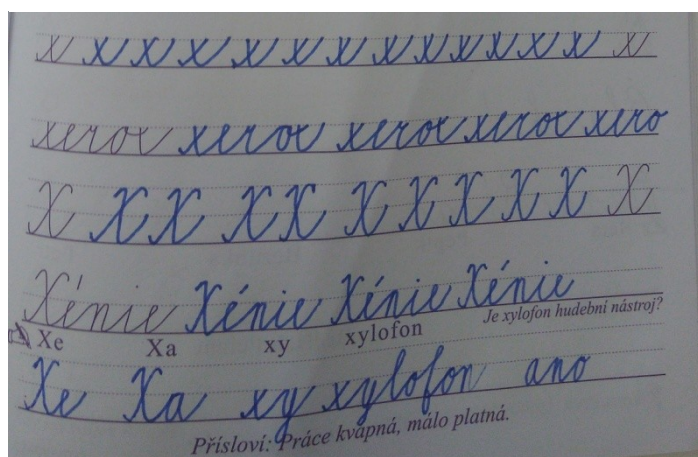 x x x x x x x x x x x x x
xerox xerox xerox xerox xero
X X X X X X X X X X X
Xénie Xénie Xénie Xénie
Xe Xa xy xylofon Je xylofon hudební nástroj?
Xe Xa xy xylofon ano
Přísloví: Práce kvapná, málo platná.